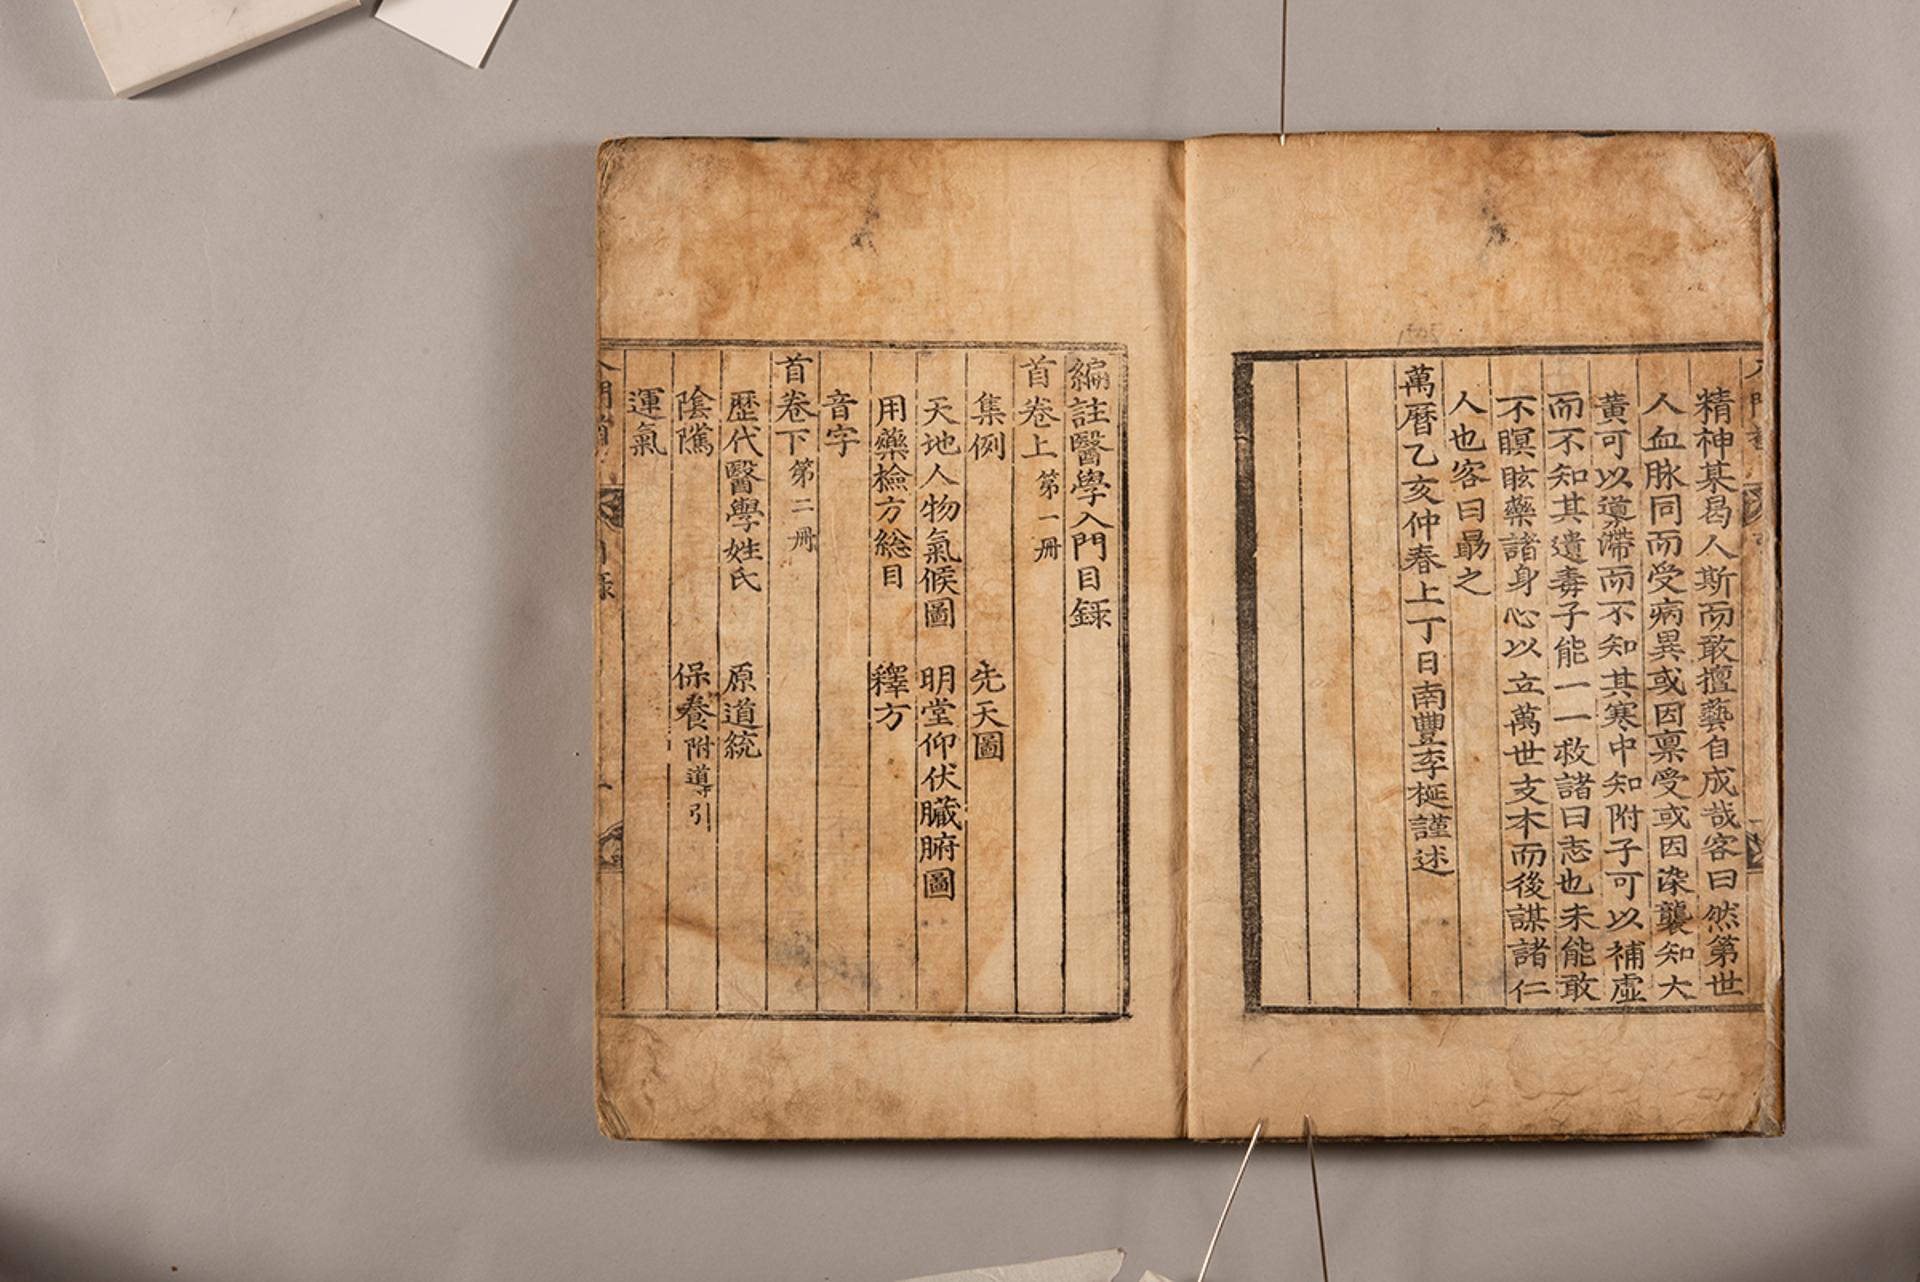 精神某曷人斯而敢擅藝自成哉客曰然第世
人血脉同而受病異或因稟受或因染襲知大
黃可以導滯而不知其寒中知附子可以補虛
而不知其遺毒子能一一救諸曰志也未能敢
不瞑眩藥諸身心以立萬世支本而後謀諸仁
人也客曰勗之
萬曆乙亥仲春上丁日南豐李梴謹述
編註醫學入門目録
首卷上 第一册
集例 先天圖
天地人物氣候圖 明堂仰伏臟腑圖
用藥檢方総目 釋方
音字
首卷下 第二册
歷代醫學姓氏 原道統
陰隲 保養 附導引
運氣